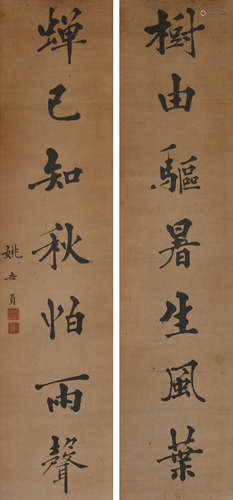 樹由驅暑生風葉
蟬已知秋怕雨聲
姚世